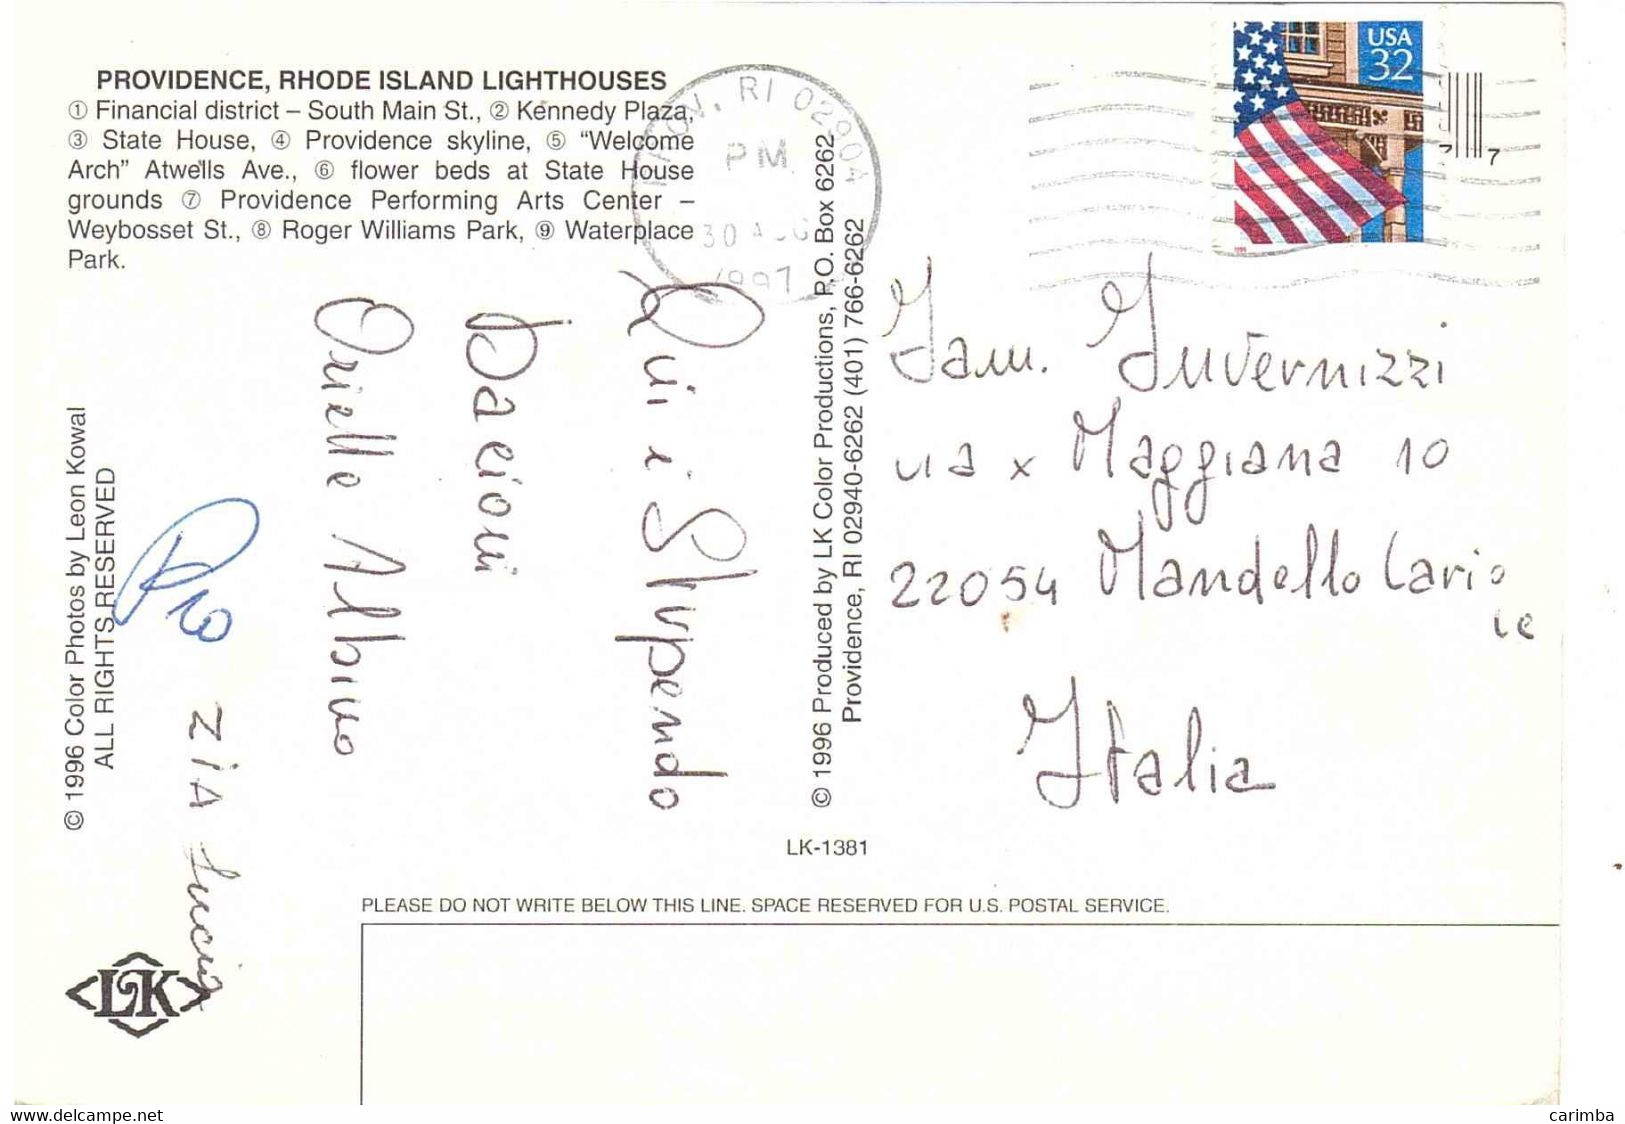 PROVIDENCE, RHODE ISLAND LIGHTHOUSES
① Financial district – South Main St., ② Kennedy Plaza,
③ State House, ④ Providence skyline, ⑤ “Welcome
Arch” Atwells Ave., ⑥ flower beds at State House
grounds ⑦ Providence Performing Arts Center –
Weybosset St., ⑧ Roger Williams Park, ⑨ Waterplace
Park.
RI 02904
PM
30 AUG
1997
USA
32
7 7
Qui è Stupendo
Bacioni
Orielle Albino
Pio
ZIA Lucia
© 1996 Color Photos by Leon Kowal
ALL RIGHTS RESERVED
© 1996 Produced by LK Color Productions, P.O. Box 6262
Providence, RI 02940-6262 (401) 766-6262
Fam. Invernizzi
via x Maggiana 10
22054 Mandello Lario
Lc
Italia
LK-1381
PLEASE DO NOT WRITE BELOW THIS LINE. SPACE RESERVED FOR U.S. POSTAL SERVICE.
LK
www.delcampe.net
carimba